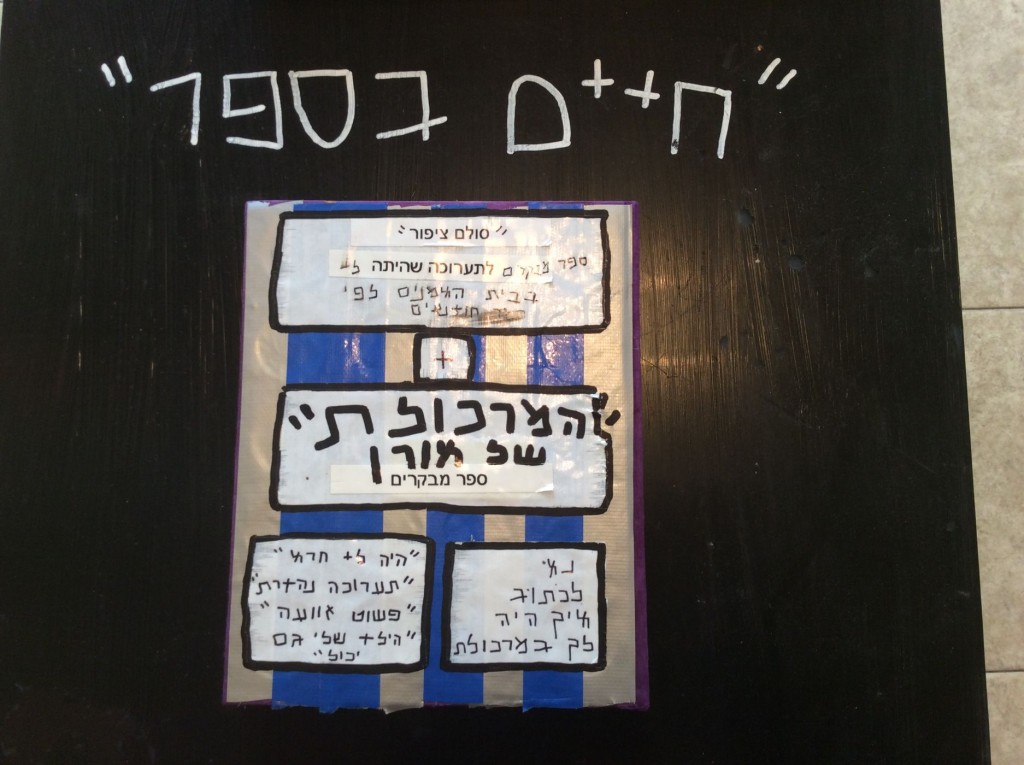 "חיים בספר"
"סולם ציפור"
ספר מבקרים לתערוכה שהיתה לי
בבית האמנים לפני
חודשים
+
"המרכולת"
של מורן
ספר מבקרים
נא
לכתוב
איך היה
לך במרכולת
"היה לי חרא"
"תערוכה נהדרת"
"פשוט זוועה"
"הילד שלי גם
יכול"